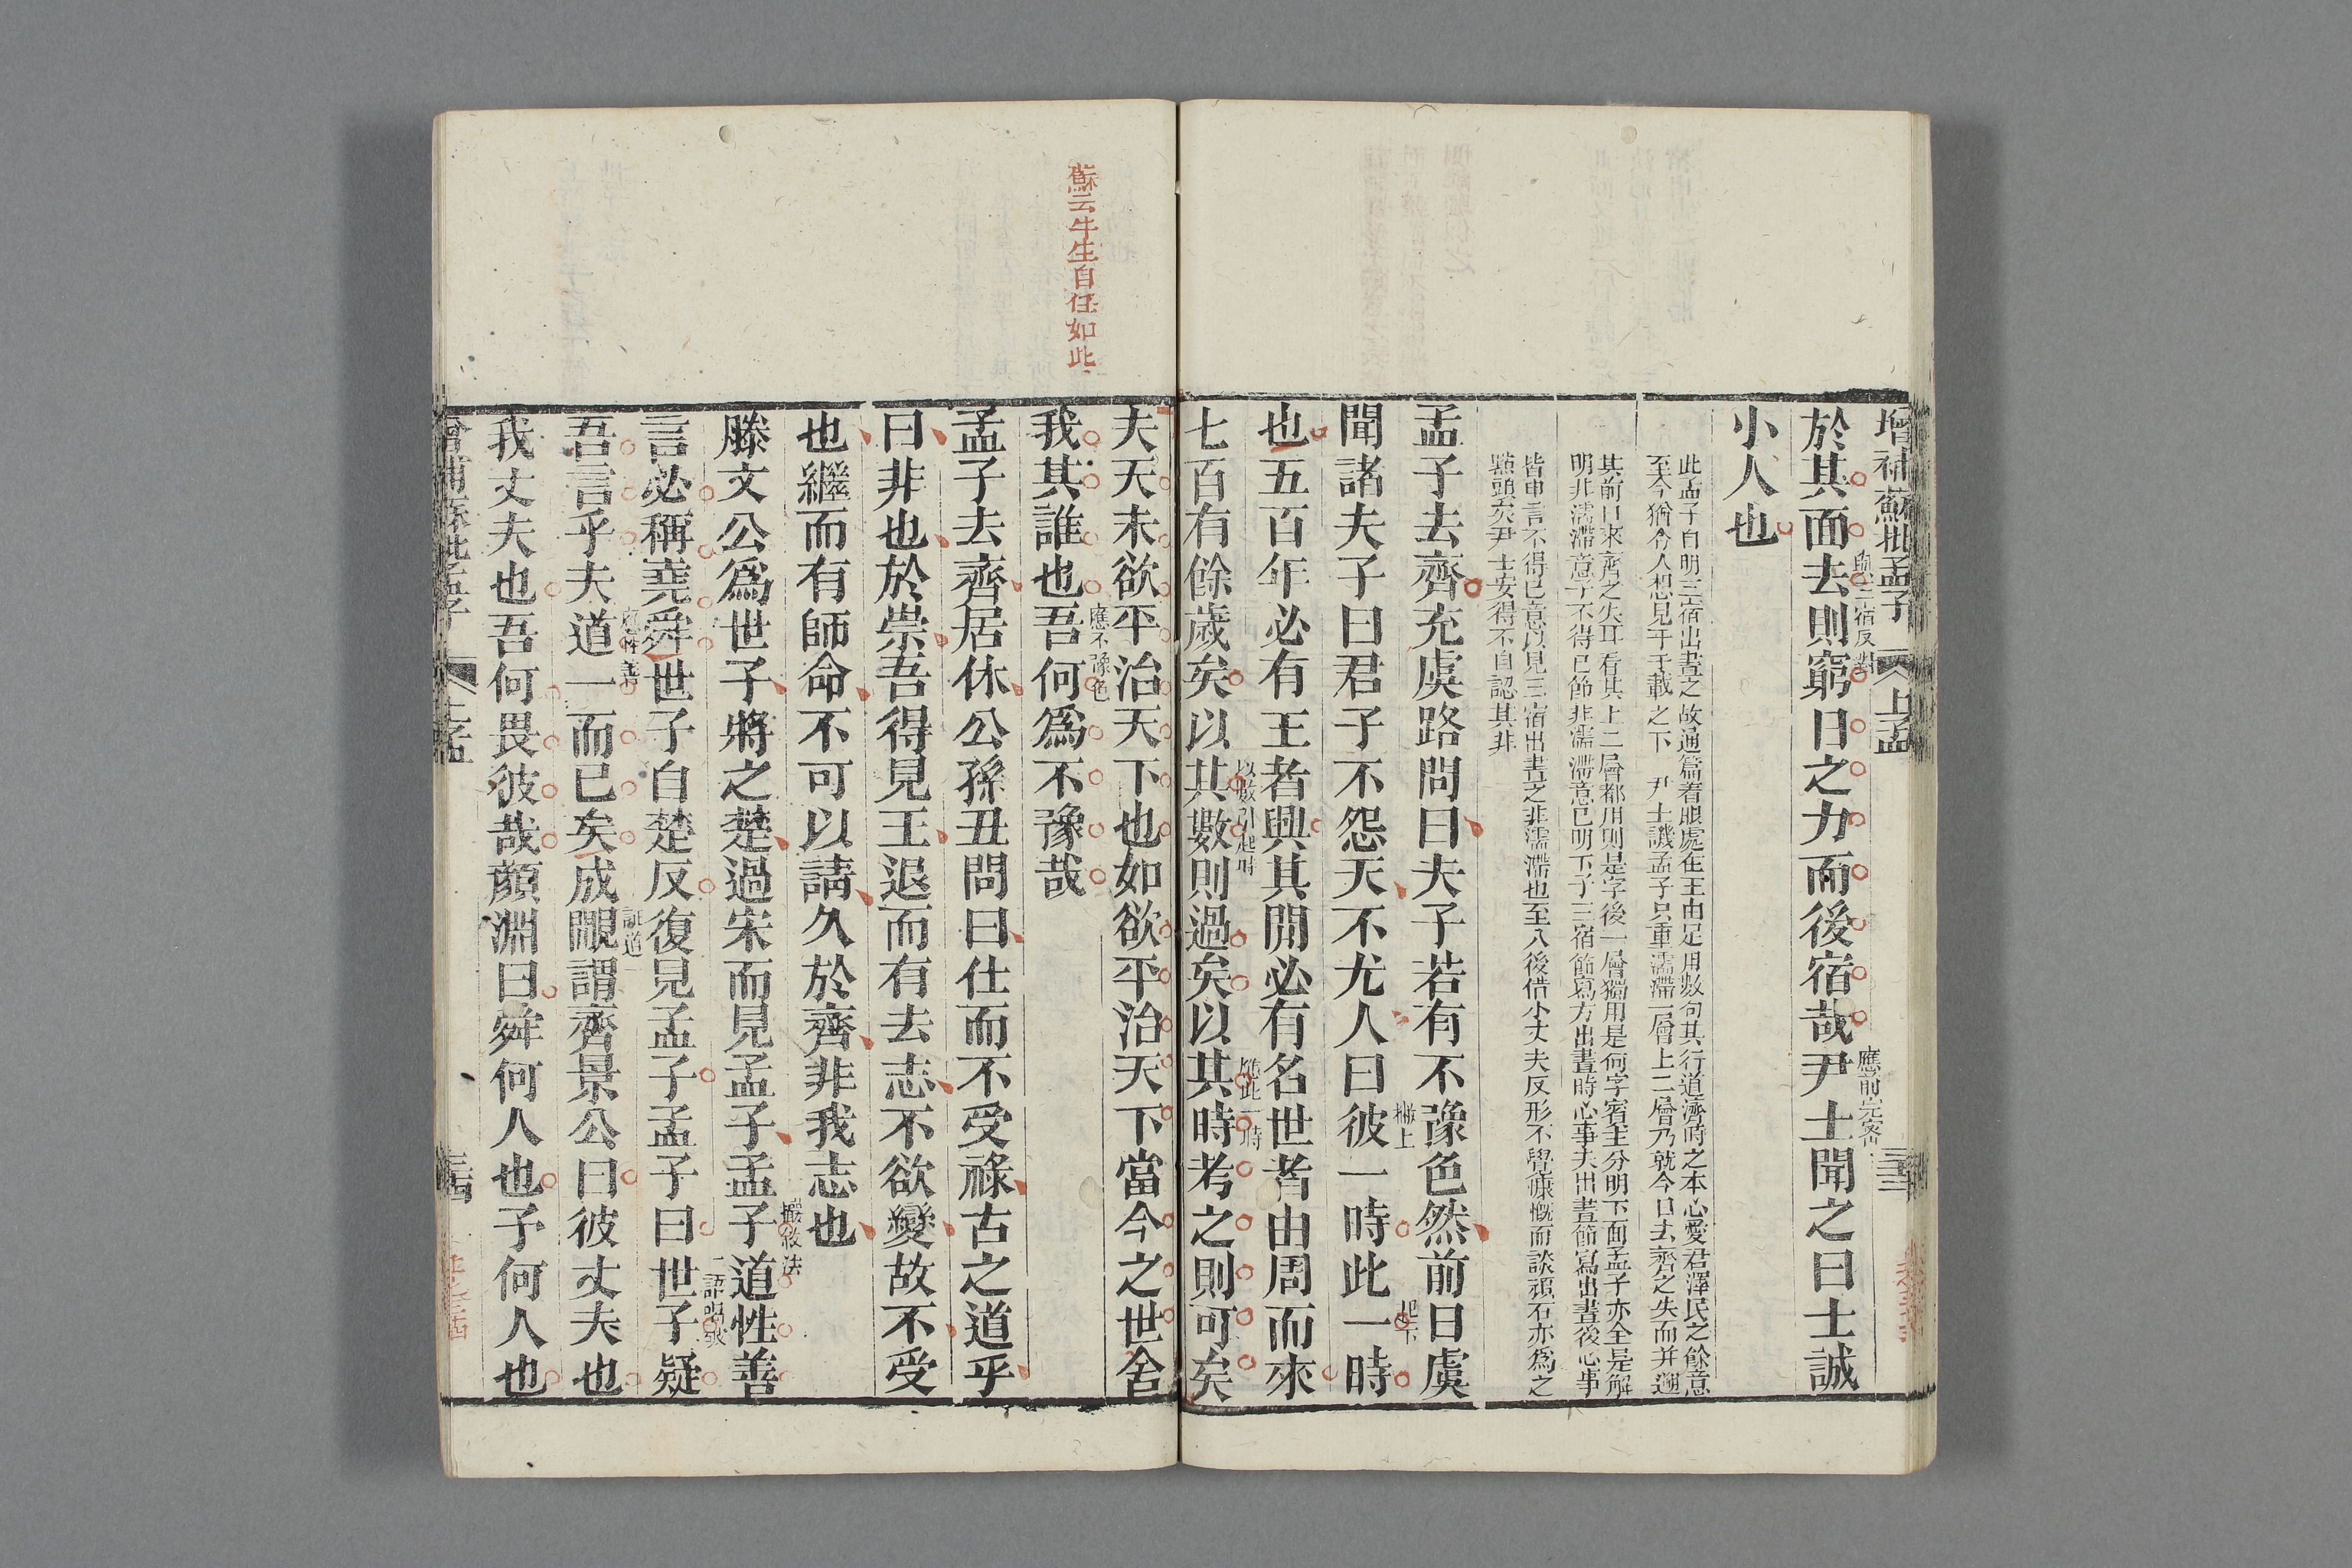 增補蘇批孟子 上孟
於其面去則窮日之力而後宿哉尹士聞之曰士誠
應前完密
小人也
此孟子自明三宿出晝之故通篇着眼處在王由足用數句其行道濟時之本心愛君澤民之餘意
至今猶令人想見于千載之下 尹士譏孟子只重濡滯一層上二層乃就今日去齊之失而并遡
其前日來齊之失耳看其上二層都用則是字後一層獨用是何字賓主分明下面孟子亦全是解
明非濡滯意予不得已節非濡滯意已明下予三宿節寫方出晝時心事夫出晝節寫出晝後心事
皆申言不得已意以見三宿出晝之非濡滯也至入後借小丈夫反形不覺慷慨而談頑石亦爲之
點頭矣尹士安得不自認其非
孟子去齊充虞路問曰夫子若有不豫色然前日虞
聞諸夫子曰君子不怨天不尤人曰彼一時此一時
也五百年必有王者興其間必有名世者由周而來
七百有餘歲矣以其數則過矣以其時考之則可矣
蘇云平生自任如此
夫天未欲平治天下也如欲平治天下當今之世舍
我其誰也吾何爲不豫哉
應不豫色
孟子去齊居休公孫丑問曰仕而不受祿古之道乎
曰非也於崇吾得見王退而有去志不欲變故不受
也繼而有師命不可以請久於齊非我志也
滕文公爲世子將之楚過宋而見孟子孟子道性善
言必稱堯舜世子自楚反復見孟子孟子曰世子疑
吾言乎夫道一而已矣成覸謂齊景公曰彼丈夫也
我丈夫也吾何畏彼哉顏淵曰舜何人也予何人也